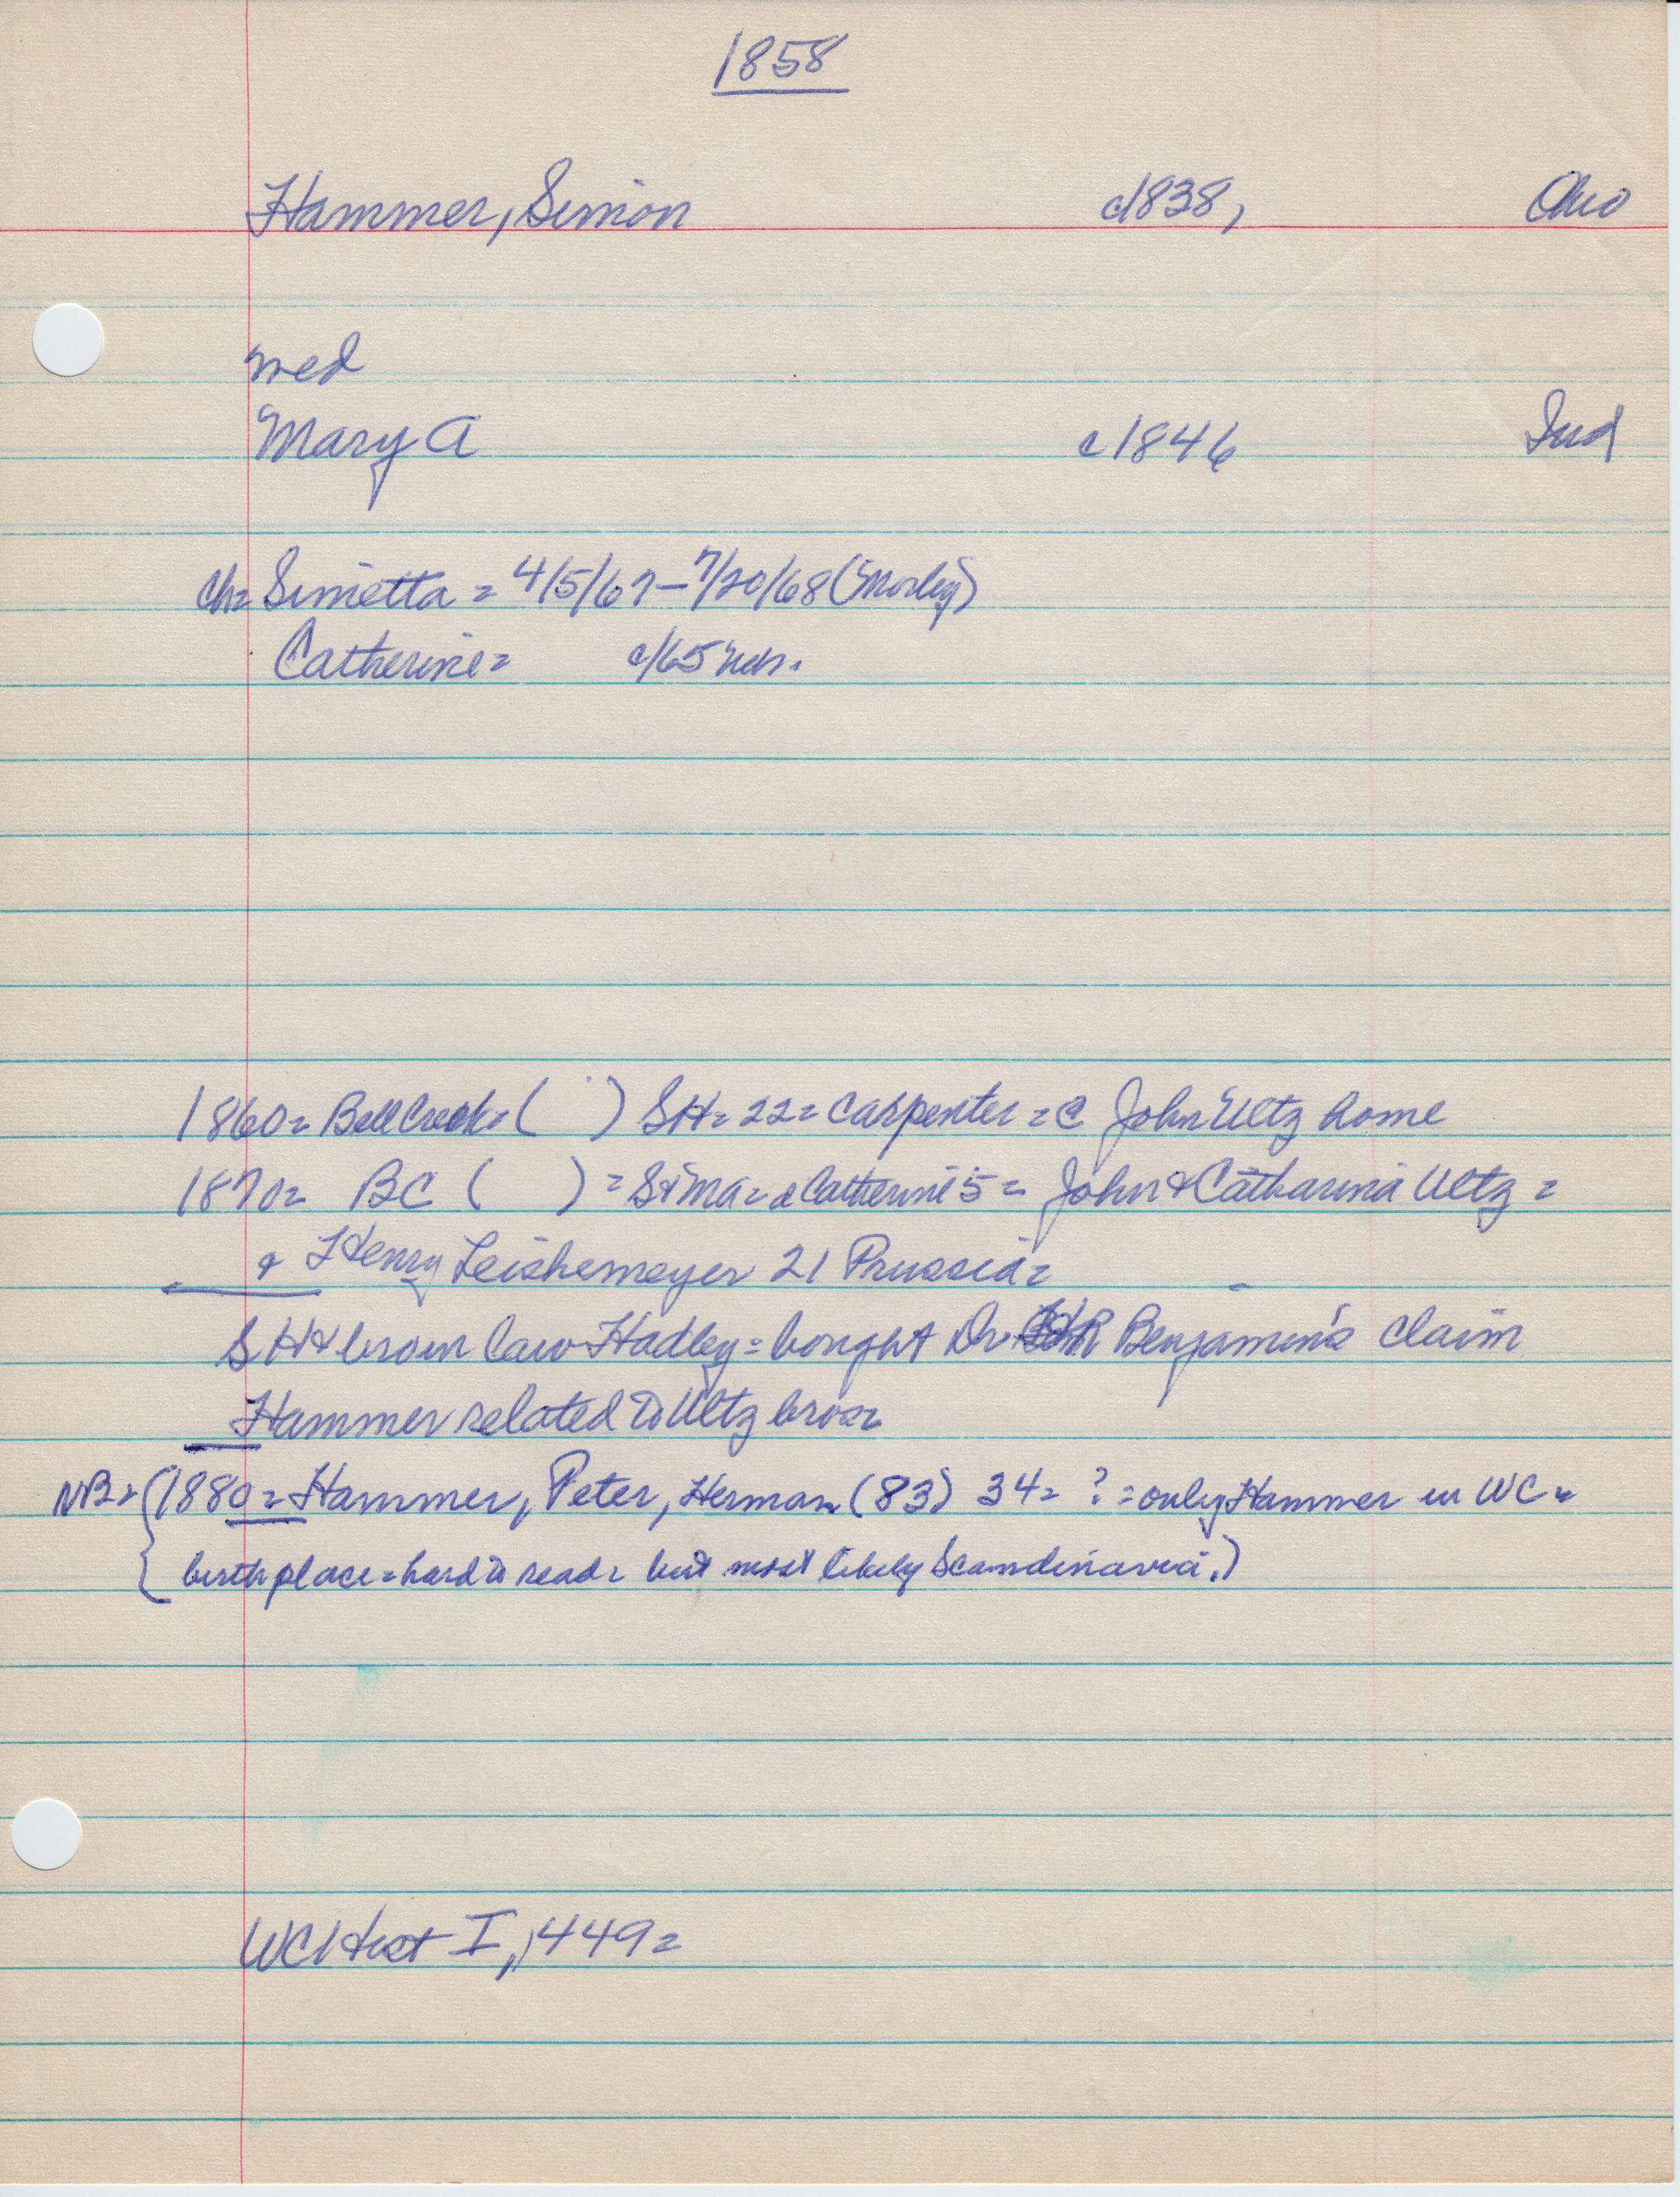 1858
Hammer, Simon c1838, Ohio
med
Mary A c1846 Ind
ch= Simetta = 4/5/67-7/20/68 (Morley)
Catherine= c/65 neb.
1860= Bell Creek= ( ) SH= 22= carpenter = c John Ultz home
1870= BC ( ) = S+MA= c Catherine 5= John & Catharina Ultz =
& Henry Leishemeyer 21 Prussia=
SH & bro in law Hadley = bought Dr. R Benjamin's claim
Hammer related to Ultz bros=
NB= (1880= Hammer, Peter, Herman (83) 34= ? = only Hammer in WC=
birthplace=hard to read= but most likely Scandinavia.)
WCHist I, 449=